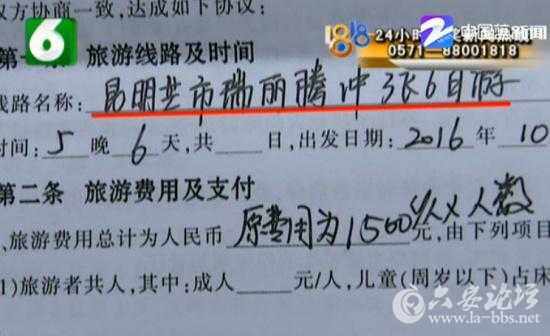 双方协商一致，达成如下协议：
6
1818
24小时
0571-88001818
第一条 旅游线路及时间
线路名称：昆明芒市瑞丽腾冲 6日游
时间：5晚6天，共 日，出发日期：2016年10
第二条 旅游费用及支付
、旅游费用总计为人民币 原费用为1500元/人×人数 元，由下列项目
1)旅游者共 人，其中：成人 元/人，儿童(周岁以下)占床
六安论坛
www.la-bbs.net